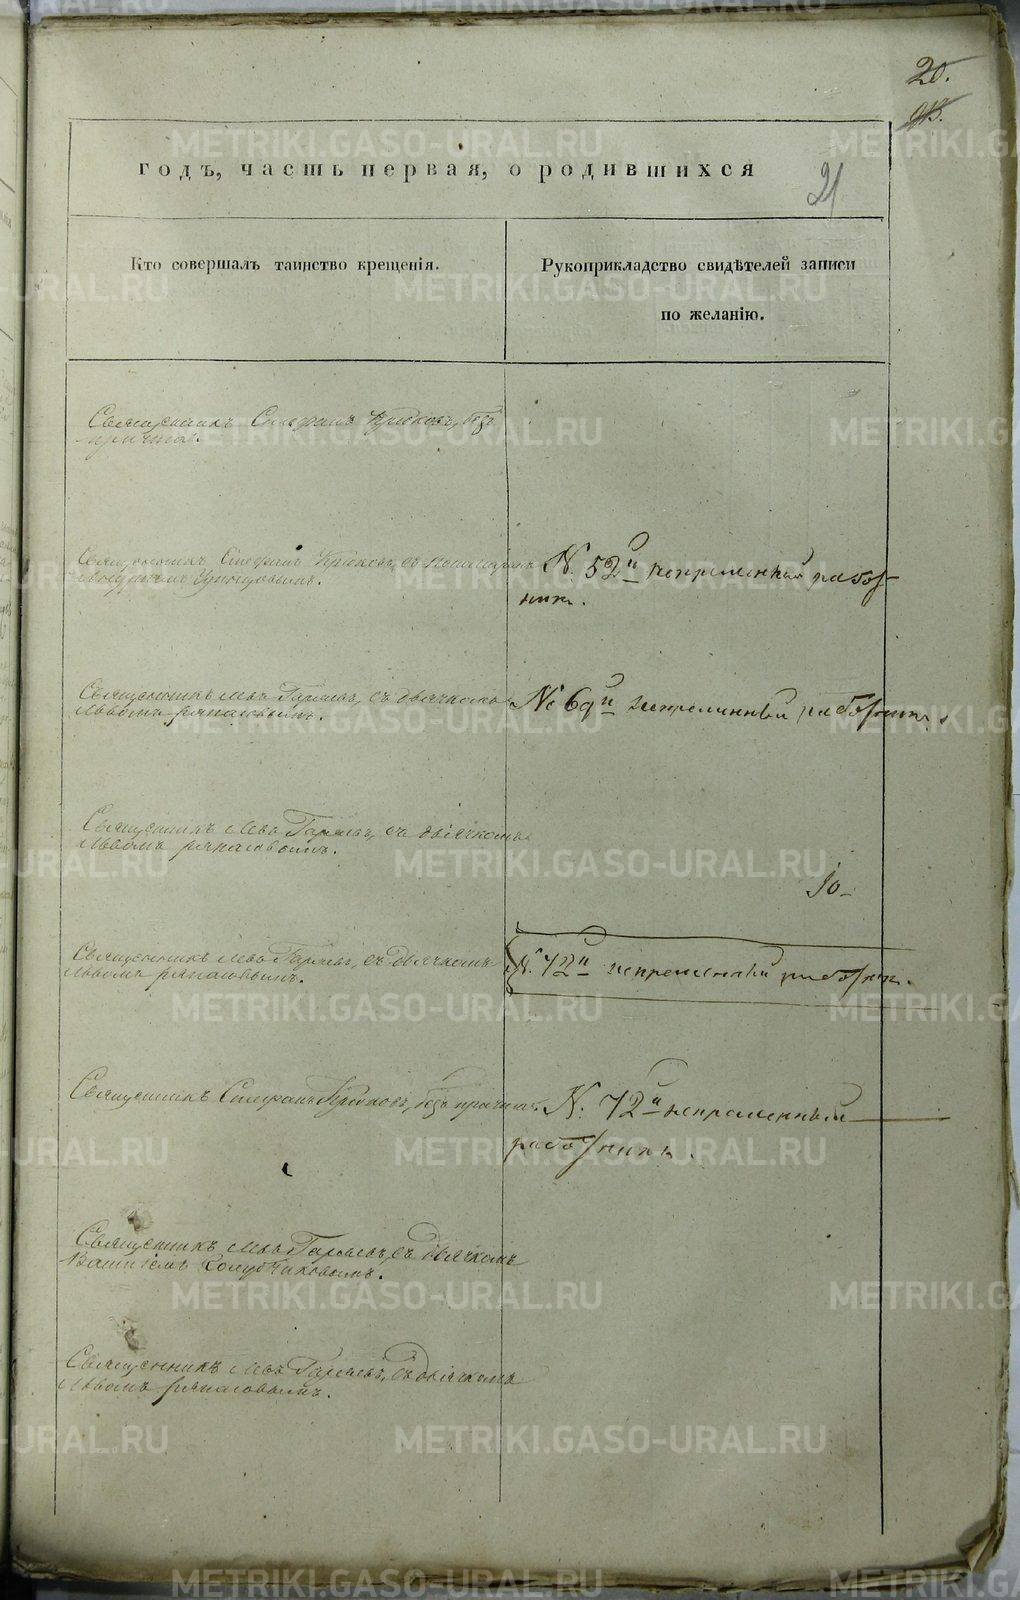 20.
913.
21
годъ, часть первая, о родившихся
Кто совершалъ таинство крещенія.
Рукоприкладство свидѣтелей записи
по желанію.
Священникъ Стефанъ Крюковъ, безъ
причта.
Священникъ Стефанъ Крюковъ, съ
N. 52й непременный работ
никъ.
Священникъ Левъ Гаряевъ, съ дьячкомъ
Львомъ
№ 69й непременный работникъ.
Священникъ Левъ Гаряевъ, съ дьячкомъ
Львомъ
10
Священникъ Левъ Гаряевъ, съ дьячкомъ
Львомъ
N. 72й непременный работник.
Священникъ Стефанъ Крюковъ, безъ причта.
N. 72й непременный
работникъ.
Священникъ Левъ Гаряевъ, съ дьячкомъ
Голубчиковымъ.
Священникъ Левъ Гаряевъ, съ дьячкомъ
Львомъ
METRIKI.GASO-URAL.RU